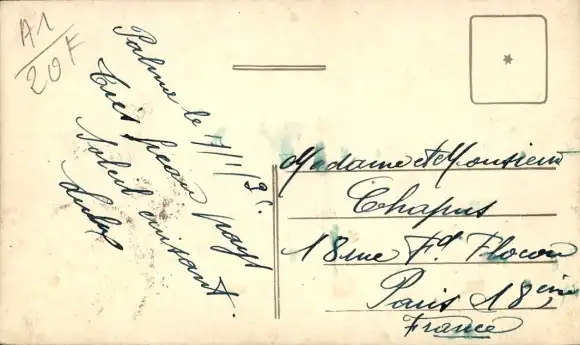 A1
20F
Palma le 1/1/3
Très beau pays
Soleil cuisant.
Madame et Monsieur
Chapus
18 rue Fd. Flocon
Paris 18ème
France